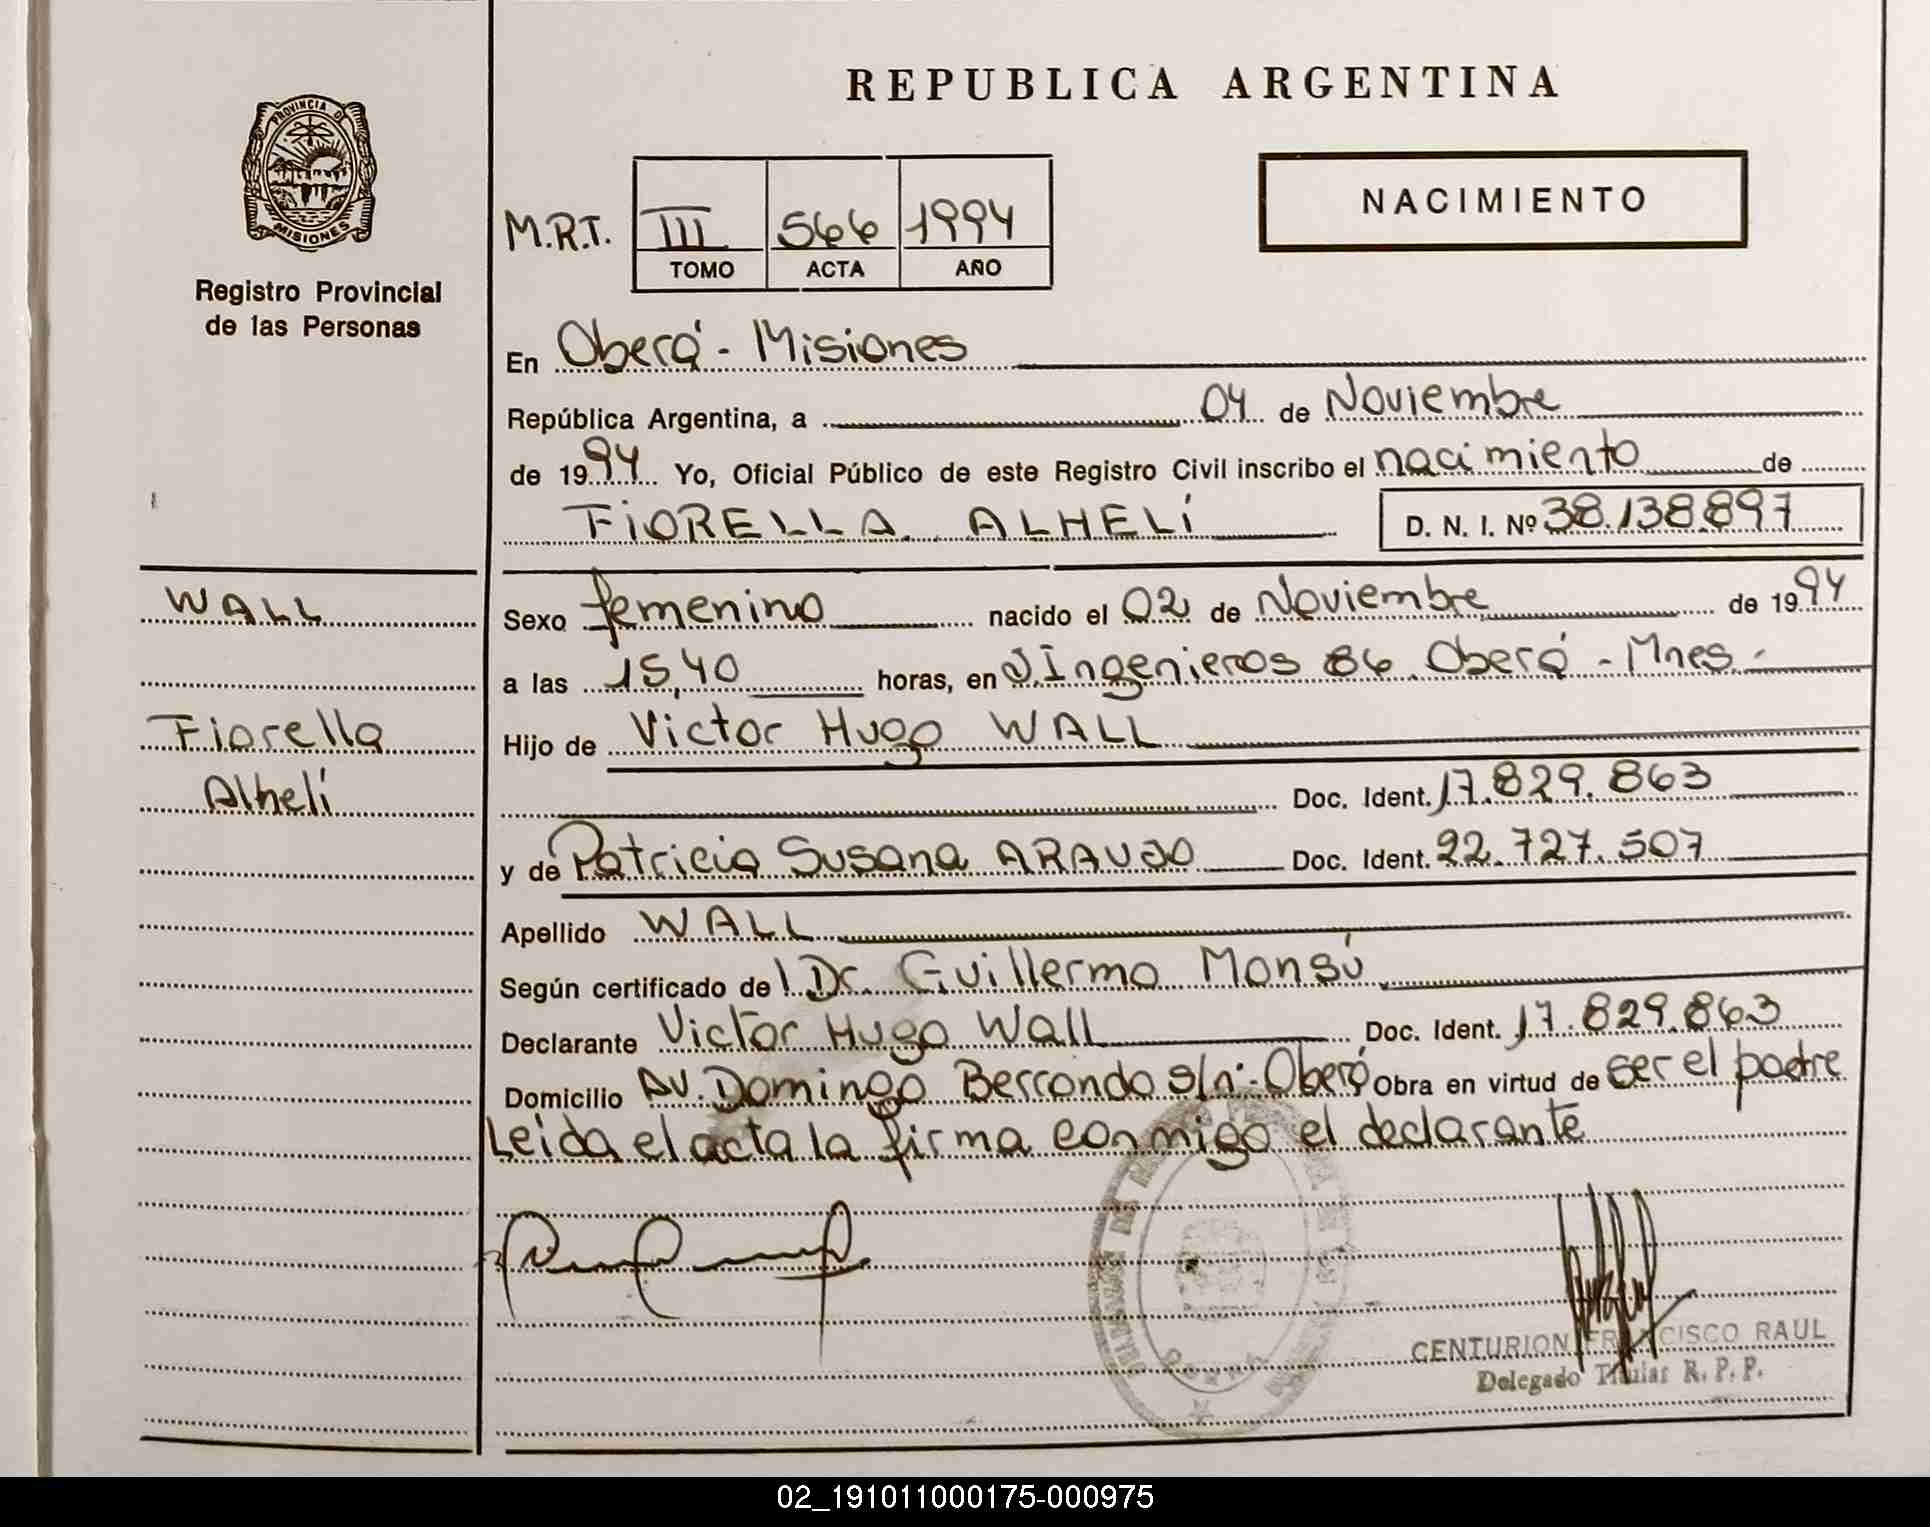 REPUBLICA ARGENTINA
PROVINCIA DE
MISIONES
Registro Provincial
de las Personas
NACIMIENTO
M.R.T. III 566 1994
TOMO ACTA AÑO
En Oberá - Misiones
República Argentina, a 04 de Noviembre
de 1994 Yo, Oficial Público de este Registro Civil inscribo el nacimiento de
FiORELLA ALHELÍ D. N. I. Nº 38.138.897
WALL
Fiorella
Alhelí
Sexo femenino nacido el 02 de Noviembre de 1994
a las 15,40 horas, en J.Ingenieros 86 Oberá - Mnes.-
Hijo de Victor Hugo WALL
Doc. Ident. 17.829.863
y de Patricia Susana ARAUJO Doc. Ident. 22.727.507
Apellido WALL
Según certificado del Dr. Guillermo Monsú
Declarante Victor Hugo Wall Doc. Ident. 17.829.863
Domicilio AV. Domingo Berrondo s/n°-Oberá Obra en virtud de ser el padre
Leida el acta la firma conmigo el declarante
CENTURION FRANCISCO RAUL
Delegado Titular R. P. P.
02_191011000175-000975